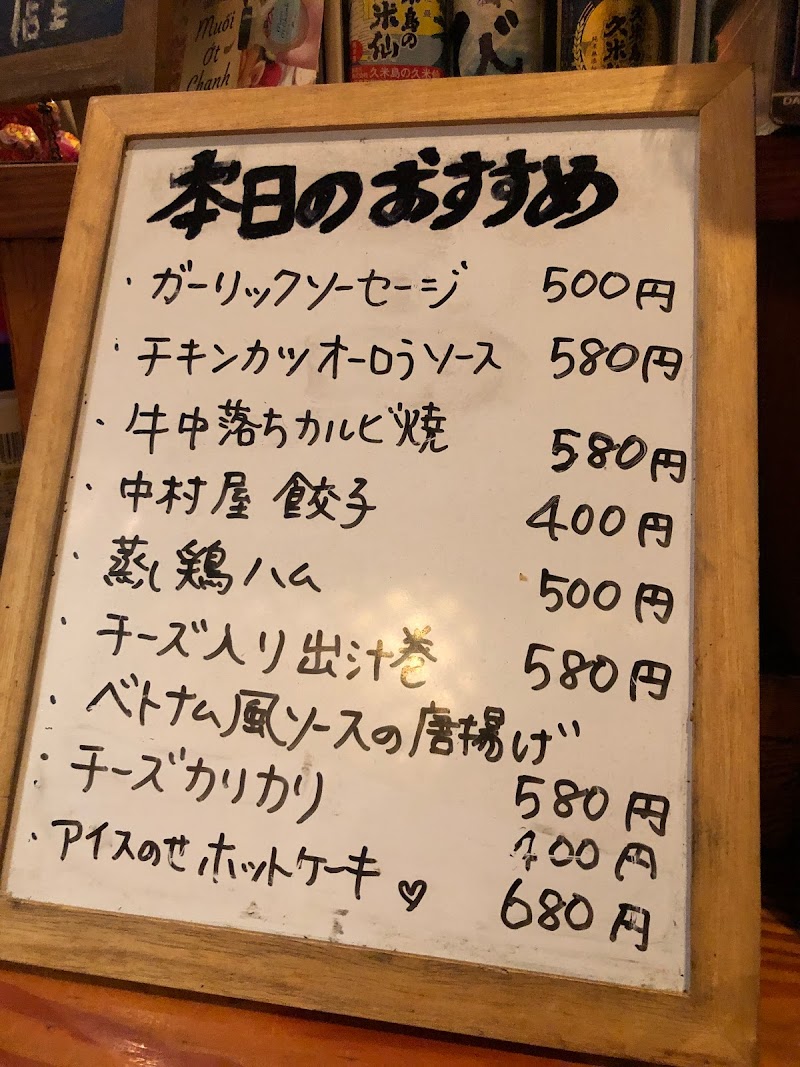 Muối
Ớt
Chanh
米島の
米仙
久米島の久米仙
久米
本日のおすすめ
・ガーリックソーセージ 500円
・チキンカツオーロラソース 580円
・牛中落ちカルビ焼 580円
・中村屋 餃子 400円
・蒸し鶏ハム 500円
・チーズ入り出汁巻 580円
・ベトナム風ソースの唐揚げ 580円
・チーズカリカリ 400円
・アイスのせホットケーキ♡ 680円